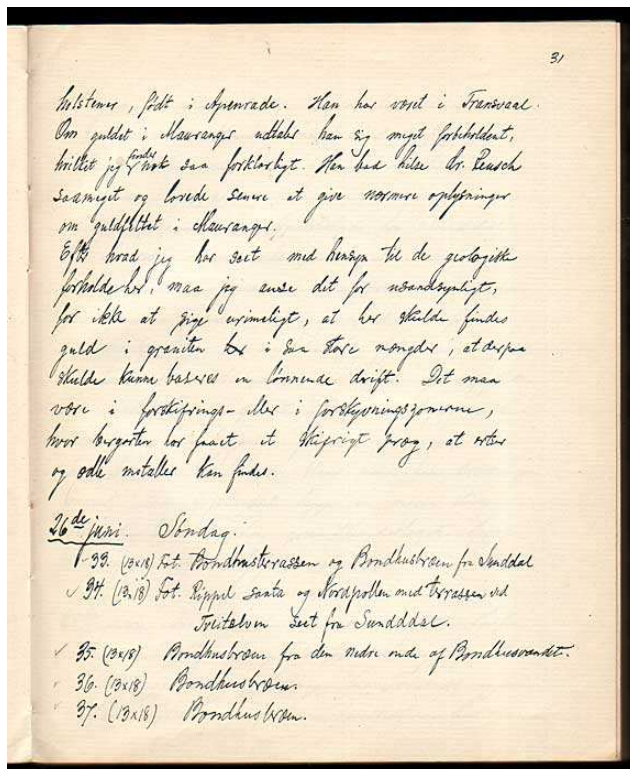 31
holstener, født i Apenrade. Han har været i Transvaal.
Om guldet i Mauranger udtaler han sig meget forbeholdent,
hvilket jeg finder nok saa forklarligt. Han bad hilse dr. Reusch
saameget og lovede senere at give nærmere oplysninger
om guldfeltet i Mauranger.
Efter hvad jeg har seet med hensyn til de geologiske
forholde her, maa jeg anse det for usandsynligt,
for ikke at sige urimeligt, at her skulde findes
guld i graniten i saa store mængder, at derpaa
skulde kunne baseres en lønnende drift. Det maa
være i forskifrings- eller i forskyvningszonerne,
hvor bergarten har faaet et skifrigt præg, at erter
og ædle metaller kan findes.
26de juni. Søndag.
✓ 33. (13x18) Fot. Bondhusterrassen og Bondhusbræen fra Sunddal
✓ 34. (13x18) Fot. Rippel santa og Nordpollen med terrassen ved
Tveitelven seet fra Sundddal.
✓ 35. (13x18) Bondhusbræen fra den nedre ende af Bondhusvandet.
✓ 36. (13x18) Bondhusbræen.
✓ 37. (13x18) Bondhusbræen.